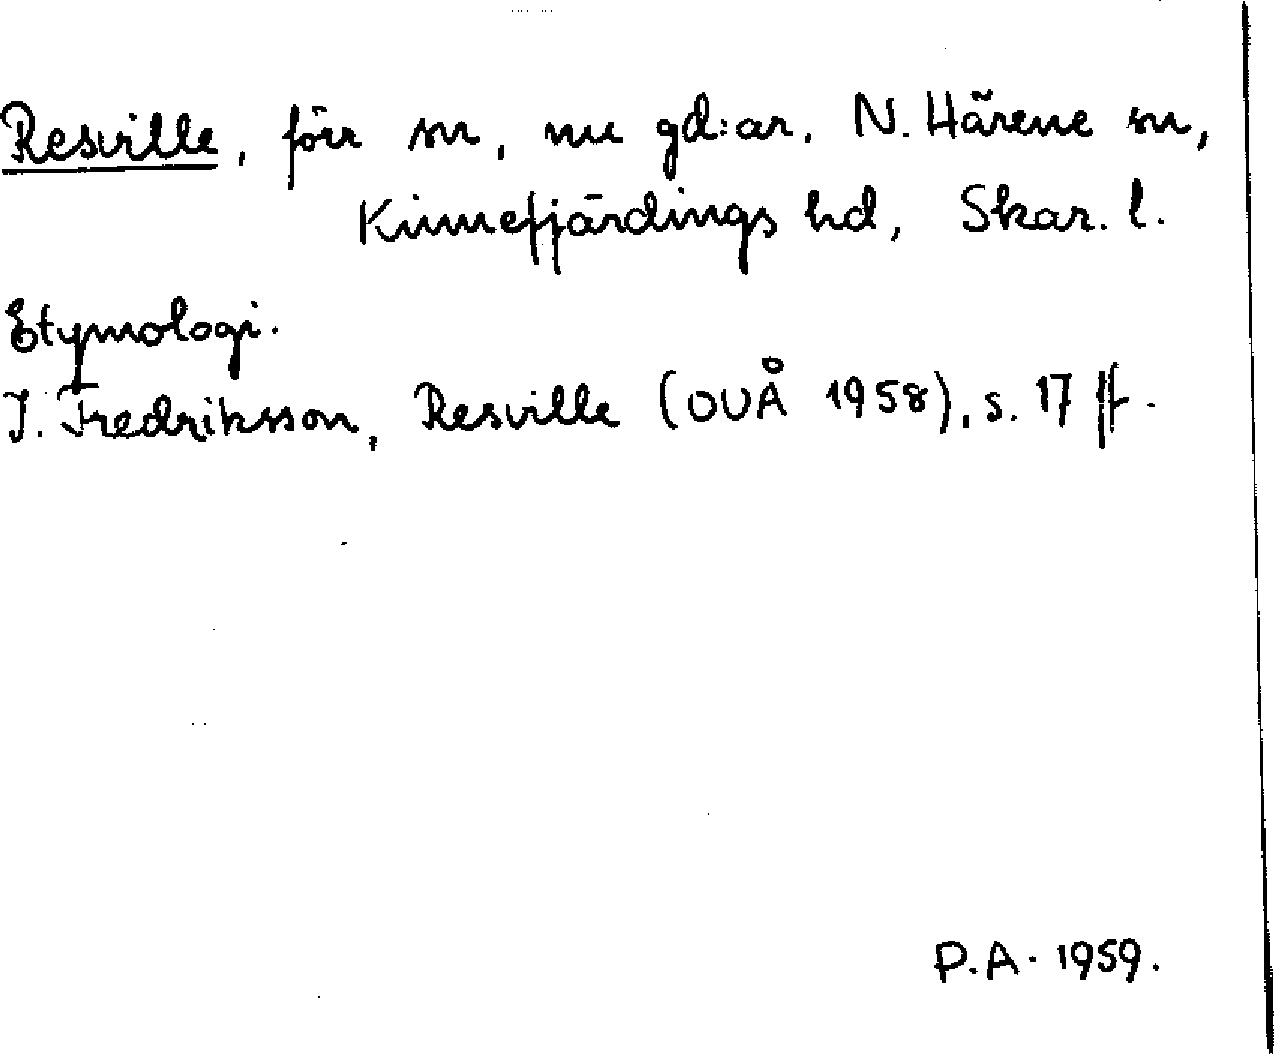 Resville, förr sn, nu gd:ar. N. Härene sn,
Kinnefjärdings hd, Skar. l.
Etymologi.
I. Fredriksson, Resville (OUÅ 1958), s. 17 ff.
P.A. 1959.